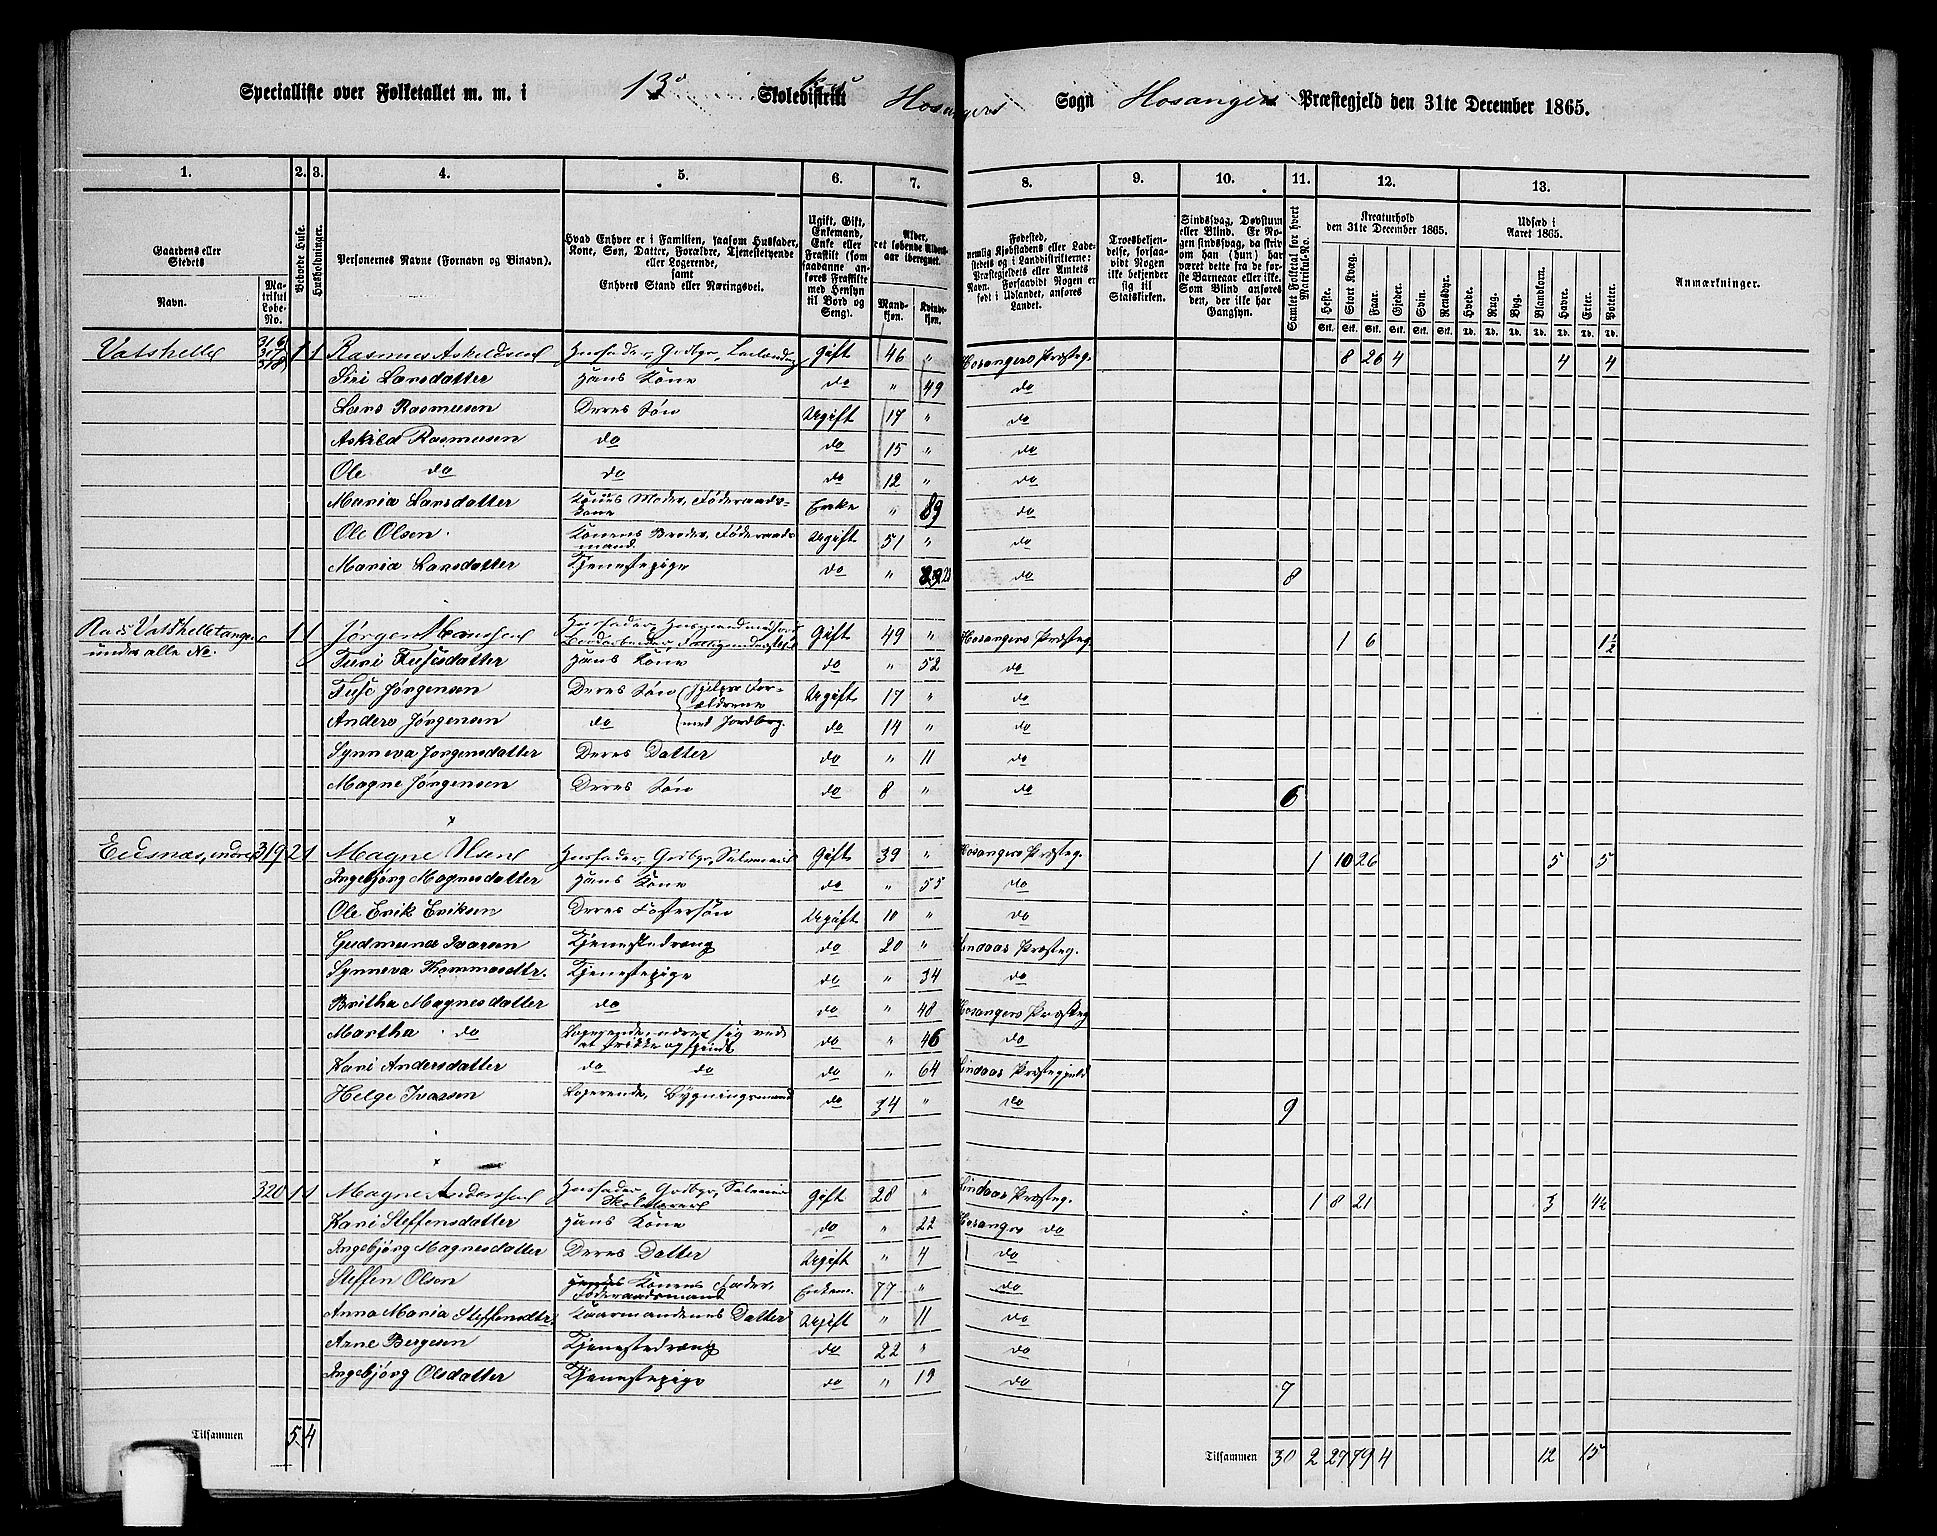 Specialliste over Folketallet m. m. i 13de Skoledistrikt Hosangers Sogn Hosangers Præstegjeld den 31te December 1865.
1. 2. 3. 4. 5. 6. 7. 8. 9. 10. 11. 12. 13.
Gaardens eller Stedets
Navn.
Matrikul Løbe-No.
Beboede Huse.
Husholdninger.
Personernes Navne (Fornavn og Binavn).
Hvad Enhver er i Familien, saasom Husfader, Kone, Søn, Datter, Forældre, Tjenestetyende eller Logerende, samt Enhvers Stand eller Næringsvei.
Ugift, Gift, Enkemand, Enke eller Fraskilt (som saadanne anføres Fraskilte med Hensyn til Bord og Seng).
Alder, det løbende Alders-aar iberegnet.
Mandkjøn. Kvindekjøn.
Fødested, nemlig Kjøbstadens eller Ladestedets og i Landdistrikterne: Præstegjeldets eller Amtets Navn. Forsaavidt Nogen er født i Udlandet, anføres Landet.
Troesbekjendelse, forsaavidt Nogen ikke bekjender sig til Statskirken.
Sindssvag, Døvstum eller Blind. Er Nogen sindssvag, da skriv om han (hun) har været dette fra de første Barneaar eller ikke. Som Blind ansøres den, der ikke har Gangsyn.
Samlet Folketal for hvert Matrikul-No.
Kreaturhold den 31te December 1865.
Heste. Stort Kvæg. Faar. Gjeder. Svin. Rensdyr.
Stk. Stk. Stk. Stk. Stk. Stk.
Udsæd i Aaret 1865.
Hvede. Rug. Byg. Blandkorn. Havre. Erter. Poteter.
Td. Td. Td. Td. Td. Td. Td.
Anmærkninger.
Vatshelle 316 317 318 1 1 Rasmus Askeldsen Husfader, Gbrbgr, Leilænding Gift 46 " Hosangers Præsteg. 8 26 4 4 4
Siri Larsdatter Hans Kone do " 49 do
Lars Rasmusen Deres Søn Ugift 17 " do
Askild Rasmusen do do 15 " do
Ole do do do 12 " do
Maria Larsdatter Konens Moder, Føderaadskone Enke " 89 do
Ole Olsen Konens Broder, Føderaadsmand Ugift 51 " do
Maria Larsdatter Tjenestepige do " 23 do 8
Vatshelletangen 1 1 Jørgen Monssen Husfader, Husmand med Jord Gift 49 " Hosangers Præsteg. 1 6 1½
under alle No.
Turi Fusesdatter Hans Kone do " 52 do
Fuse Jørgensen Deres Søn hjelper Forældrene Ugift 17 " do
Anders Jørgensen do med Jordbrg. do 14 " do
Synneva Jørgensdatter Deres Datter do " 11 do
Magne Jørgensen Deres Søn do 8 " do 6
Eidsnæs, indre 319 2 1 Magne Olsen Husfader, Gbrbgr, Selveier Gift 39 " Hosangers Præsteg. 1 10 26 5 5
Ingebjørg Magnesdatter Hans Kone do " 55 do
Ole Erik Eriksen Deres Fostersøn Ugift 10 " do
Gudmund Ivarsen Tjenestedreng do 20 " Lindaas Præsteg.
Synneva Thommasdtr. Tjenestepige do " 34 do
Britha Magnesdatter do do " 48 Hosangers Præsteg
Martha do Logerende, nærer sig ved at strikke og spinde do " 46 do
Kari Andersdatter do do do " 64 Lindaas Præstegjeld
Helge Ivarsen Logerende, Bygningsmand do 34 " do 9
320 1 1 Magne Anderssen Husfader, Gbrbgr, Selveier Skolelærer Gift 28 " Lindaas Præsteg. 1 8 21 3 4½
Kari Steffensdatter Hans Kone do " 22 Hosangers do
Ingebjørg Magnesdatter Deres Datter Ugift " 4 do
Steffen Olsen Konens Fader, Føderaadsmand Enkem. 77 " do
Anna Maria Steffensdtr. Kaarmandens Datter Ugift " 11 do
Arne Bergesen Tjenestedreng do 22 " do
Ingebjørg Olsdatter Tjenestepige do " 19 do 7
Tilsammen 5 4
Tilsammen 30 2 27 79 4 12 15